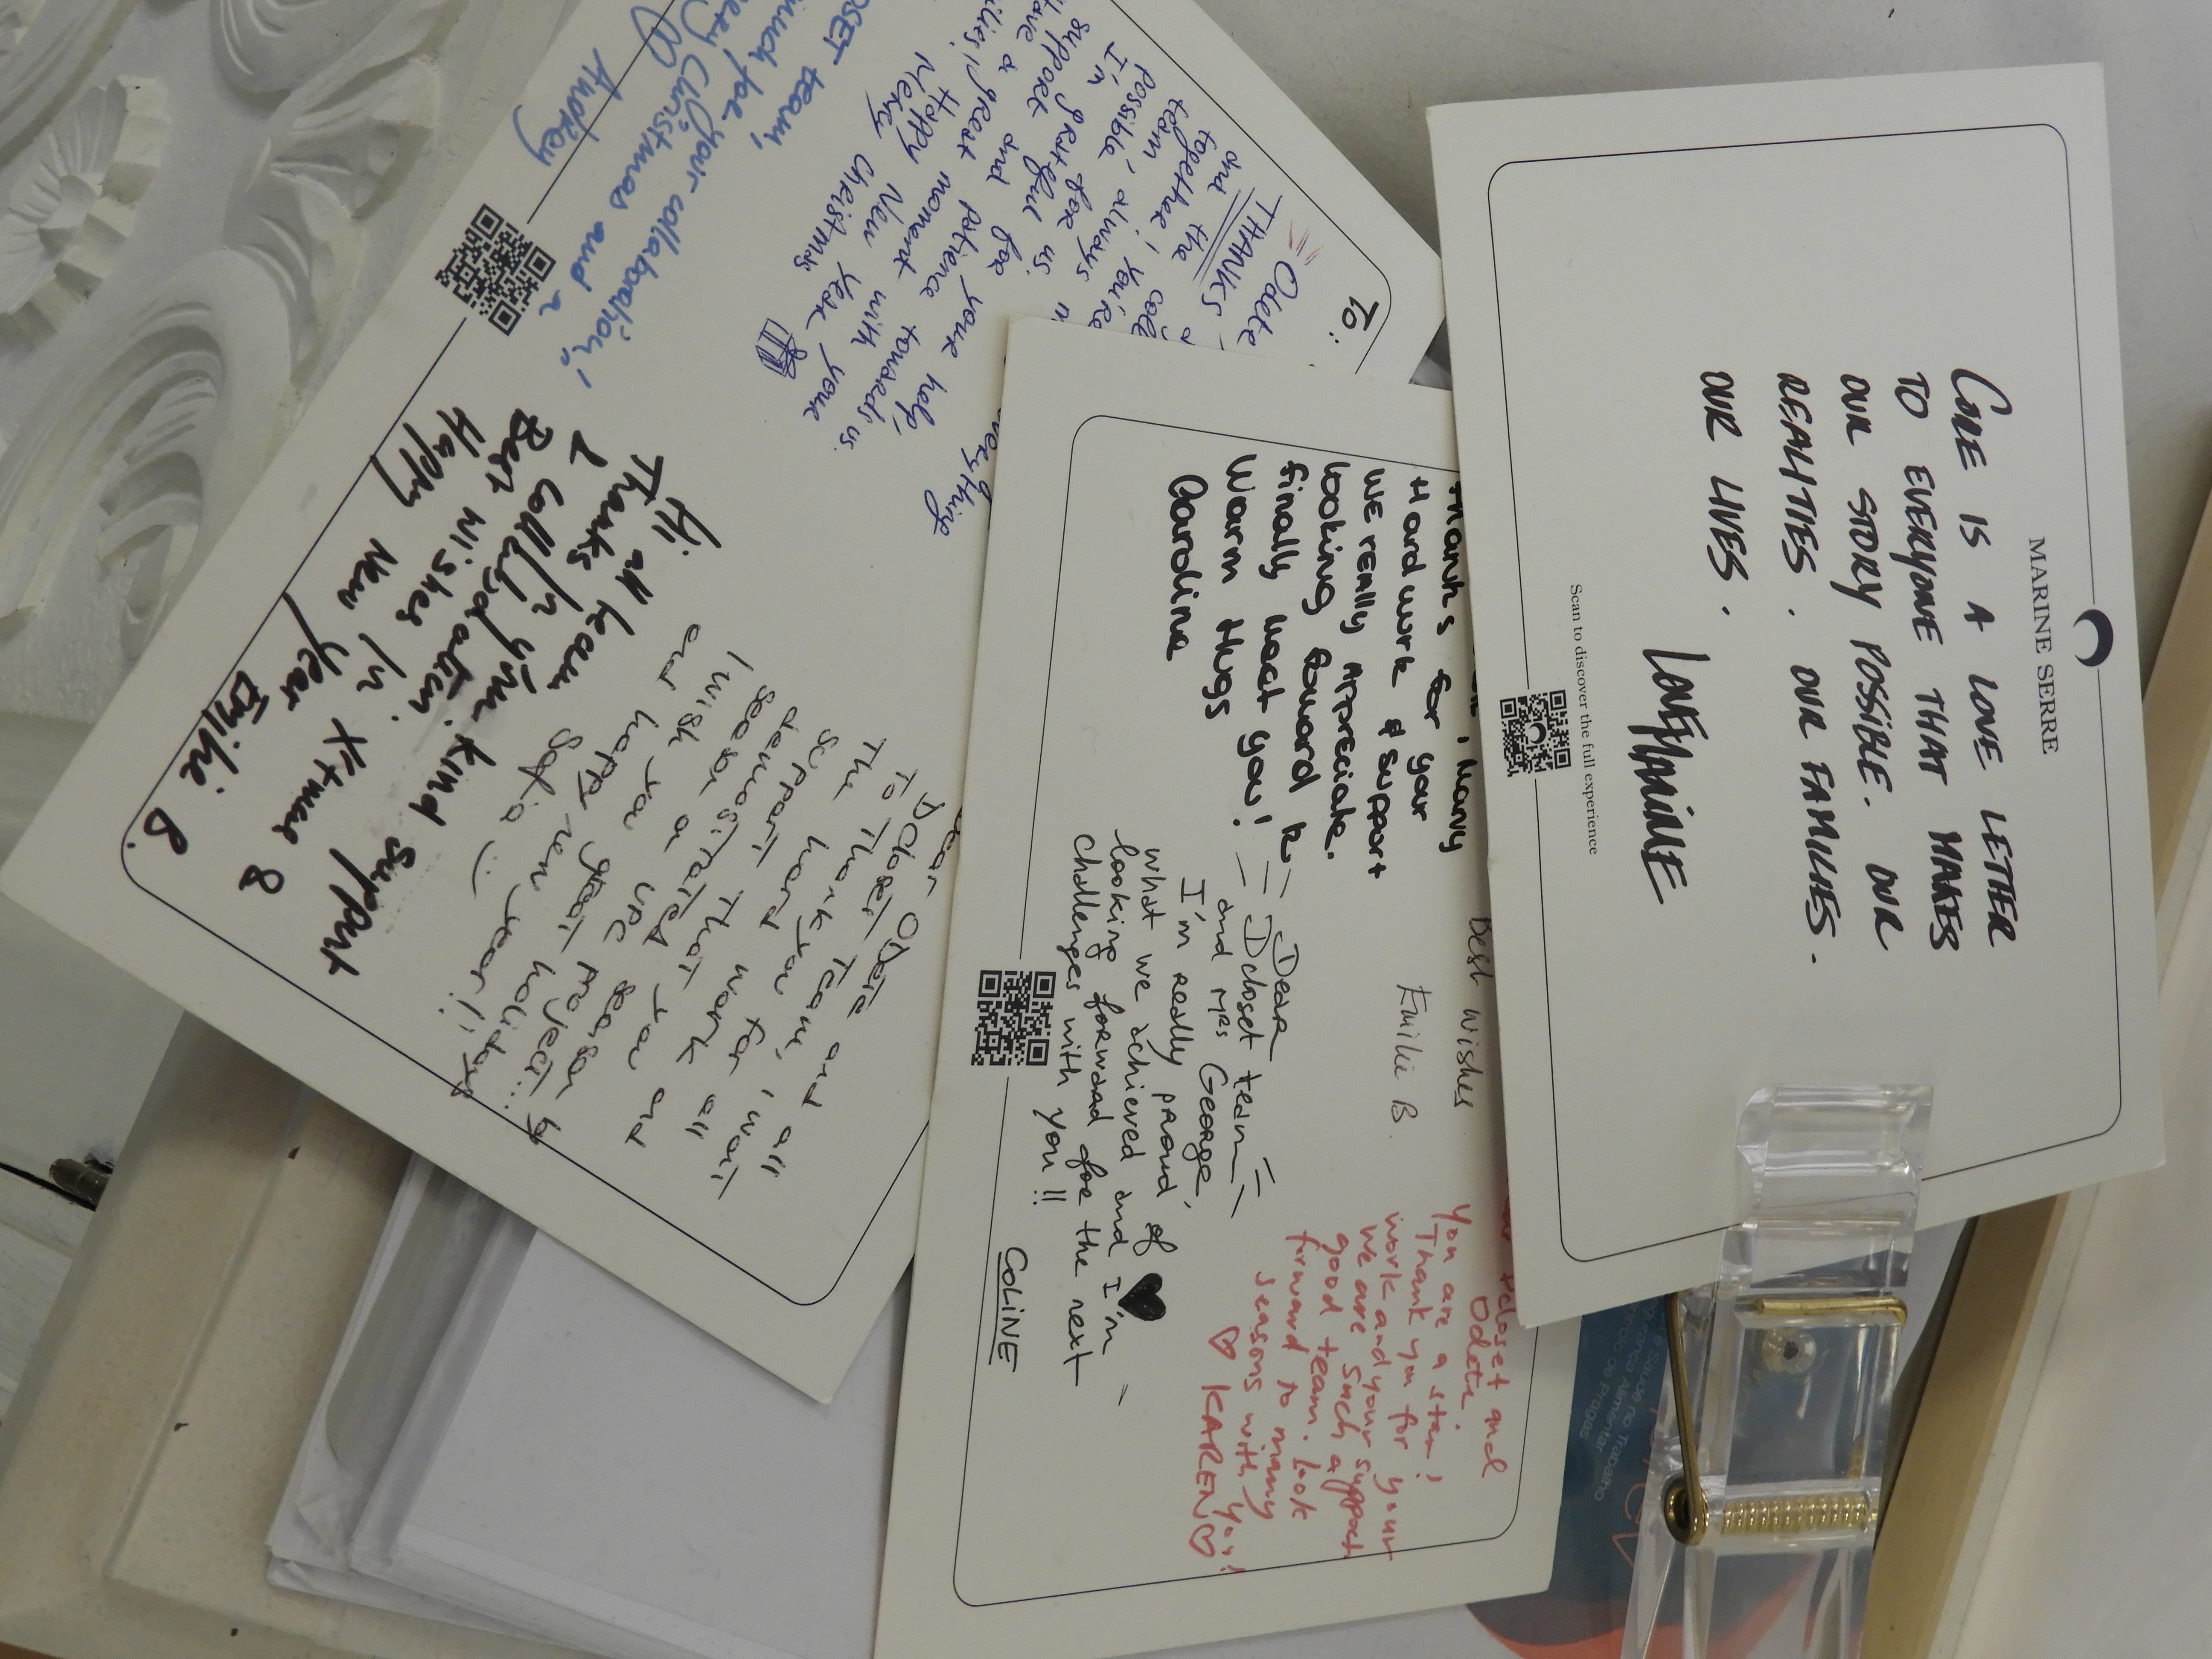 MARINE SERRE
CORE IS A LOVE LETTER
TO EVERYONE THAT MAKES
OUR STORY POSSIBLE. OUR
REALITIES. OUR FAMILIES.
OUR LIVES.
LOVE MARINE
Scan to discover the full experience
many
Thanks for your
Hard work & support
we really appreciate.
Looking foward to
finally meet you!
Warm Hugs
Caroline
Best wishes
Emilie B.
Dcloset and
Odete.
You are a star!
Thank you for your
work and your support
we are such a
good team. Look
forward to many
seasons with you!
♡ KAREN ♡
= Dear =
- Dcloset team -
and Mrs George,
I'm really proud of
what we achieved and I'm
looking forward for the next
challenges with you!!
COLINE
To:
Odete
THANKS
and
together! the
team
possible. always
I'm
You're
support
grateful for
us.
have a
and for
great patience your help,
moment with towards us.
Happy New Year
Merry Christmas
everything
OSET team,
much for your collaboration!
Merry Christmas and a
Audrey
Hi all team
Thanks for your kind support
& collaboration.
Best wishes for Xtmas &
Happy New Year
Emilie B.
Dear Odete and all
To Dcloset Team, I want
To Thank you for all
The hard work
support That you and
demostrated
season a
I wish you great holidays
and happy new year!!
Sofia :)
e Saúde no Trabalho
gurança Alimentar
ntrolo de Pragas